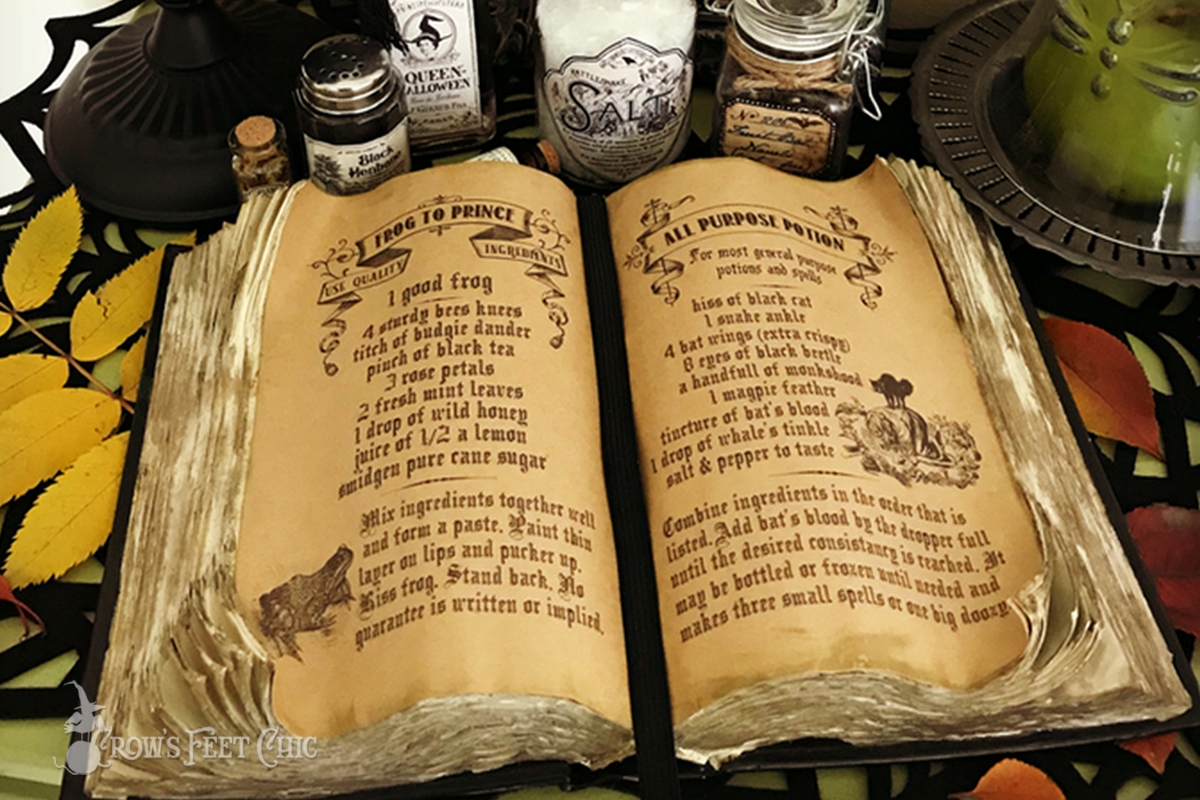 QUEEN
HALLOWEEN
Black
Henbane
RATTLESNAKE
SALT
FROG TO PRINCE
USE QUALITY INGREDIENTS
1 good frog
4 sturdy bees knees
titch of budgie dander
pinch of black tea
3 rose petals
2 fresh mint leaves
1 drop of wild honey
juice of 1/2 a lemon
smidgen pure cane sugar
Mix ingredients together well
and form a paste. Paint thin
layer on lips and pucker up.
Kiss frog. Stand back. No
guarantee is written or implied.
ALL PURPOSE POTION
For most general purpose
potions and spells
hiss of black cat
1 snake ankle
4 bat wings (extra crispy)
8 eyes of black beetle
a handfull of monkshood
1 magpie feather
tincture of bat's blood
1 drop of whale's tinkle
salt & pepper to taste
Combine ingredients in the order that is
listed. Add bat's blood by the dropper full
until the desired consistancy is reached. It
may be bottled or frozen until needed and
makes three small spells or one big doozy.
CROW'S FEET CHIC